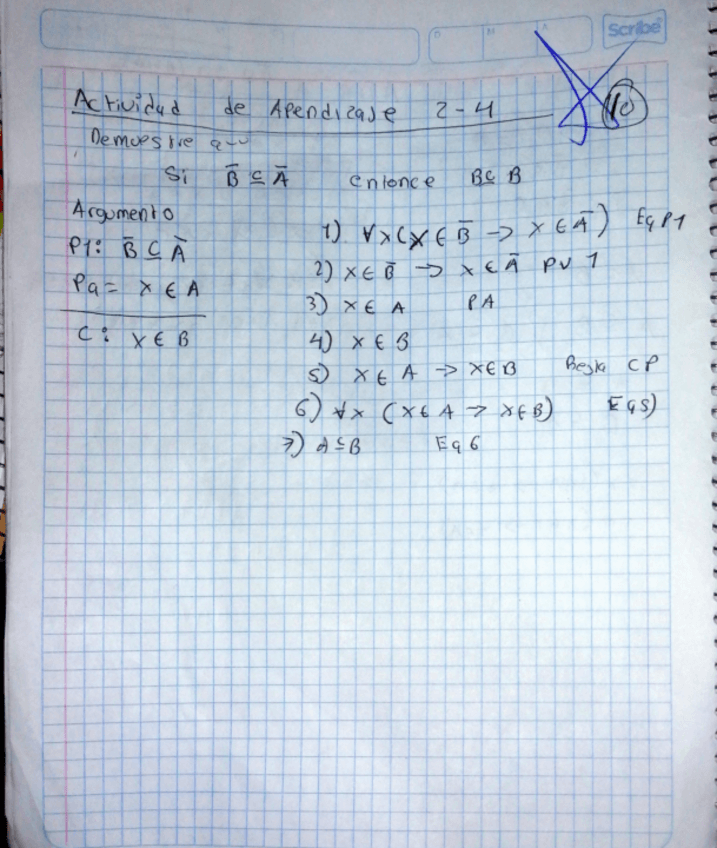 Scribe
D M A
Actividad de Apendizaje 2-4
10
Demuestre
Si B̅ ⊆ A̅ entonce B⊆ B
Argumento
P1: B̅ ⊆ A̅
Pa= x ∈ A
C: x ∈ B
1) ∀x(x ∈ B̅ -> x ∈ A̅) Eq P1
2) x ∈ B̅ -> x ∈ A̅ PU 1
3) x ∈ A PA
4) x ∈ B
5) x ∈ A -> x∈B CP
6) ∀x (x∈ A -> x∈B) Eq 5)
7) A⊆B Eq 6